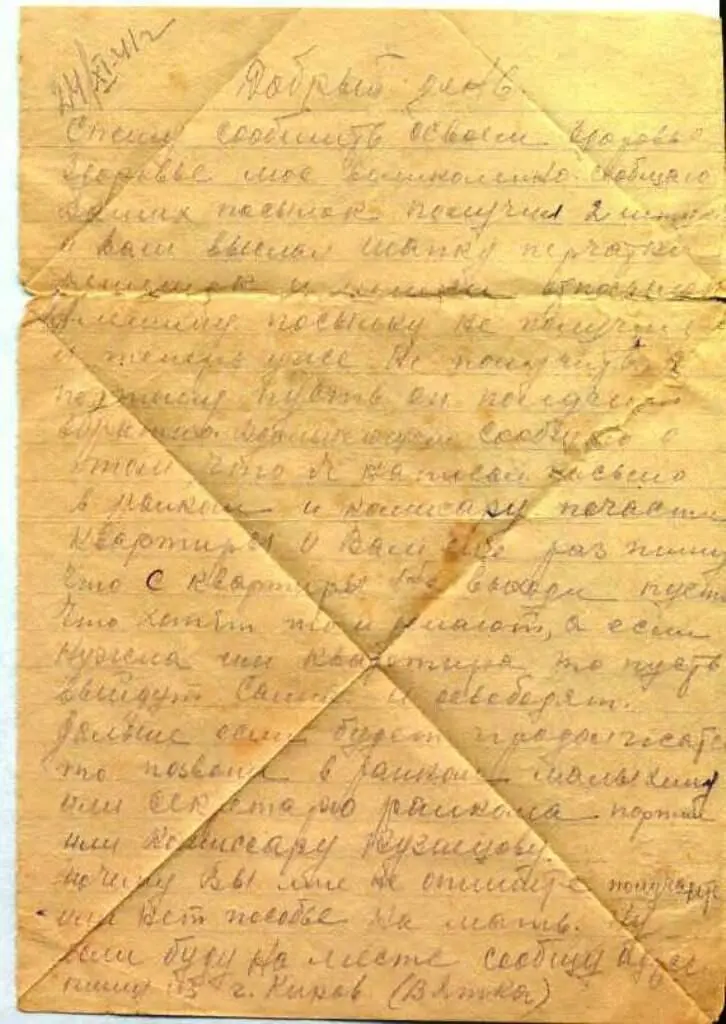 24/XI-41 г
Добрый день.
Спешу сообщить о своем здоровье
здоровье мое великолепно. сообщаю
ваших посылок получил 2 штуки
и вам выслал шапку перчатки
мешок и
посылку не получил
и теперь уже не получить, а
пусть он
сообщаю о
том что я написал письмо
в райком и комисару по части
квартиры и Вам ще раз пишу
что с квартиры не выходи пусть
что хотят то и делают, а если
нужна им квартира то пусть
выйдут сами и освободят.
Дальше если будет продолжать
то позвони в райком Малыхину
или секретарю райкома партии
или Комиссару Кузнецову.
почему Вы мне не опишите получаете
или нет пособье на мать. Ну
если буду на месте сообщу адрес
пишу из г. Киров (Вятка)